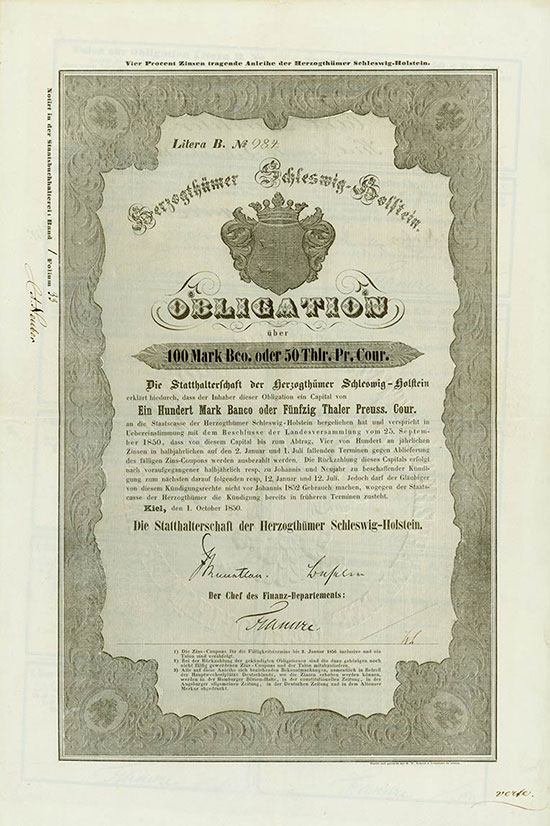 Vier Procent Zinsen tragende Anleihe der Herzogthümer Schleswig-Holstein.
Notirt in der Staatsbuchhalterei: Band 1 Folium 35
Litera B. № 984.
Herzogthümer Schleswig-Holstein.
OBLIGATION
über
100 Mark Bco. oder 50 Thlr. Pr. Cour.
Die Statthalterschaft der Herzogthümer Schleswig-Holstein
erklärt hiedurch, dass der Inhaber dieser Obligation ein Capital von
Ein Hundert Mark Banco oder Fünfzig Thaler Preuss. Cour.
an die Staatscasse der Herzogthümer Schleswig-Holstein hergeliehen hat und verspricht in
Uebereinstimmung mit dem Beschlusse der Landesversammlung vom 25. Septem-
ber 1850, dass von diesem Capital bis zum Abtrag, Vier von Hundert an jährlichen
Zinsen in halbjährlichen auf den 2. Januar und 1. Juli fallenden Terminen gegen Ablieferung
des fälligen Zins-Coupons werden ausbezahlt werden. Die Rückzahlung dieses Capitals erfolgt
nach voraufgegangener halbjährlich resp. zu Johannis und Neujahr zu beschaffender Kündi-
gung zum nächsten darauf folgenden resp. 12. Januar und 12. Juli. Jedoch darf der Gläubiger
von diesem Kündigungsrechte nicht vor Johannis 1852 Gebrauch machen, wogegen der Staats-
casse der Herzogthümer die Kündigung bereits in früheren Terminen zusteht.
Kiel, den 1. October 1850.
Die Statthalterschaft der Herzogthümer Schleswig-Holstein.
Der Chef des Finanz-Departements:
1) Die Zins-Coupons für die Fälligkeitstermine bis 2. Januar 1856 inclusive und ein
Talon sind verabfolgt.
2) Bei der Rückzahlung der gekündigten Obligationen sind die dazu gehörigen noch
nicht fällig gewordenen Zins-Coupons und der Talon mitabzuliefern.
3) Alle auf diese Anleihe sich beziehenden Bekanntmachungen, namentlich in Betreff
der Hauptwechselplätze Deutschlands, wo die Zinsen erhoben werden können,
werden in der Hamburger Börsen-Halle, in der constitutionellen Zeitung, in der
Augsburger allgemeinen Zeitung, in der Deutschen Zeitung und in dem Altonaer
Merkur abgedruckt.
verte.